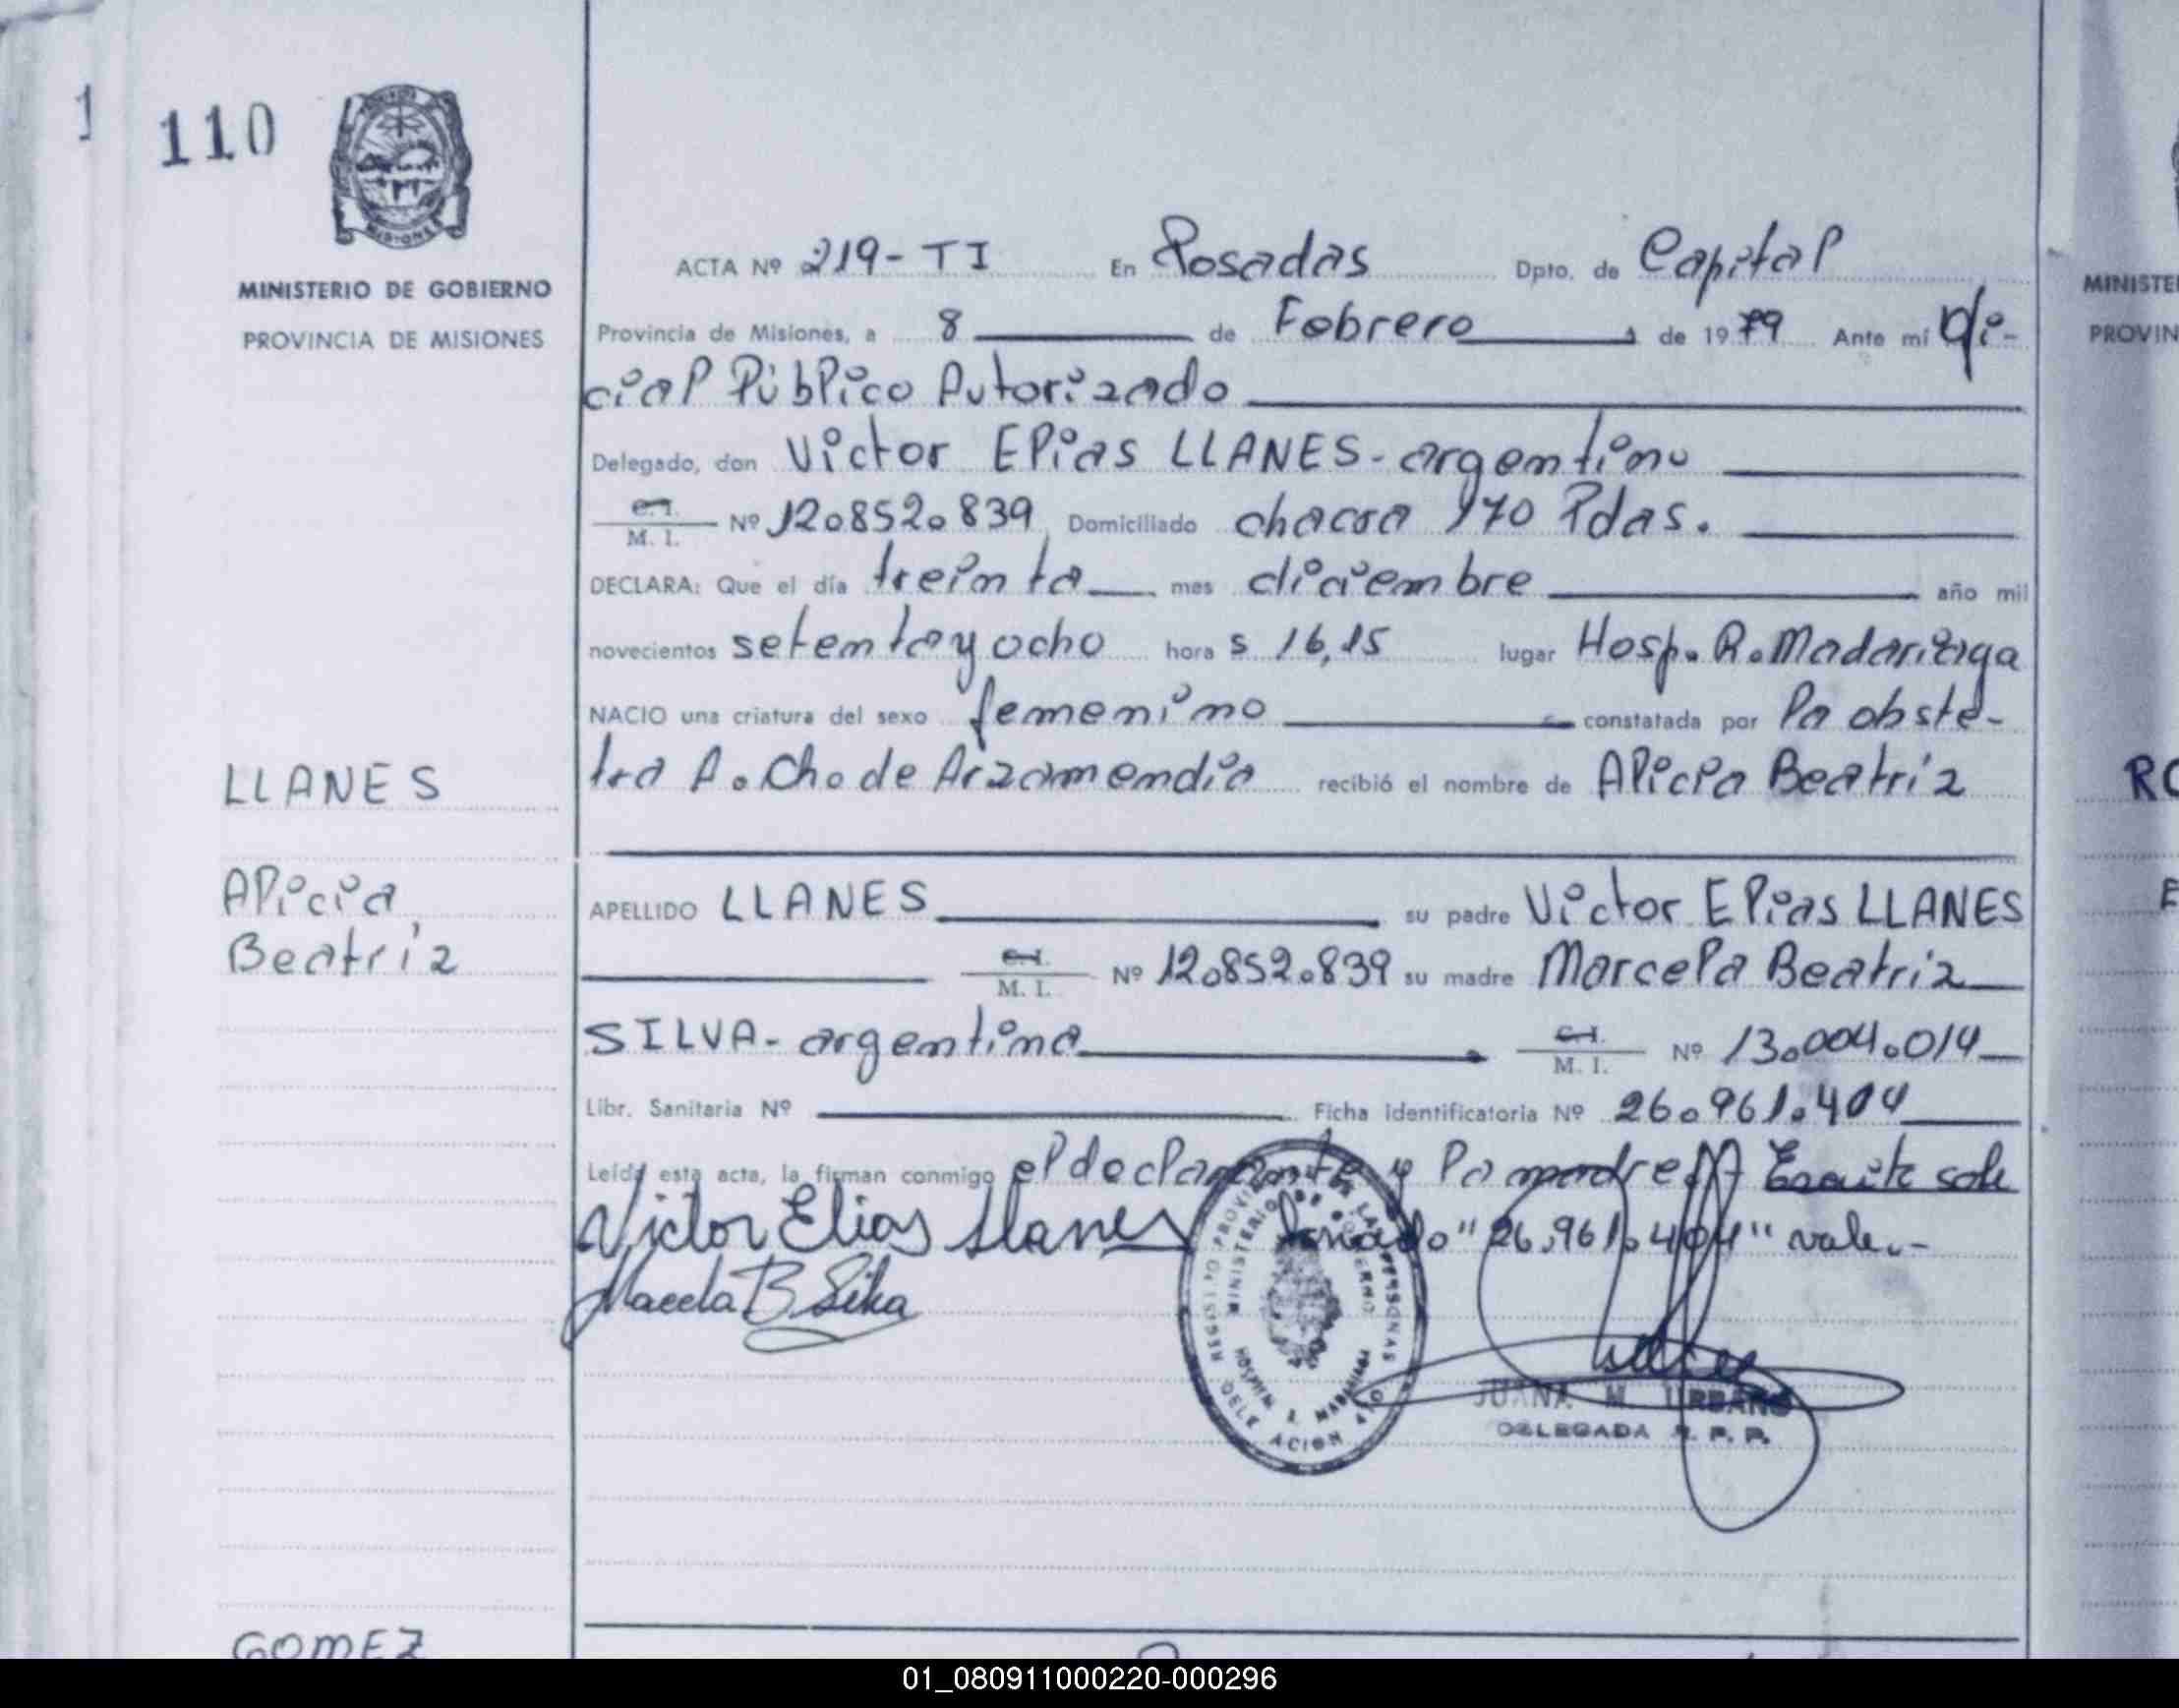 1
110
MISIONES
MINISTERIO DE GOBIERNO
PROVINCIA DE MISIONES
ACTA Nº 219-TI En Posadas Dpto. de Capital
Provincia de Misiones, a 8 de Febrero de 1979 Ante mí Ofi-
cial Público Autorizado
Delegado, don Victor Elias LLANES - argentino
C.I. M. I. Nº 12.852.839 Domiciliado chacra 170 Pdas.
DECLARA: Que el día treinta mes diciembre año mil
novecientos setenta y ocho hora s 16,15 lugar Hosp. R. Madariaga
NACIO una criatura del sexo femenino constatada por la obste-
LLANES
tra A. Cho de Arzamendia recibió el nombre de Alicia Beatríz
Alicia
Beatríz
APELLIDO LLANES su padre Victor Elias LLANES
C.I. M. I. Nº 12.852.839 su madre Marcela Beatriz
SILVA - argentina C.I. M. I. Nº 13.004.014
Libr. Sanitaria Nº Ficha identificatoria Nº 26.961.404
Leída esta acta, la firman conmigo el declarante y la madre Escrito sobre
Victor Elias Llanes "26.961.404" vale.-
Marcela B Silva
REGISTRO PROVINCIAL DE LAS PERSONAS
MINISTERIO DE GOBIERNO
HOSPITAL R. MADARIAGA
DELEGACION
JUANA M. URBANO
DELEGADA R. P. P.
GOMEZ
MINISTE
PROVIN
RO
E
01_080911000220-000296